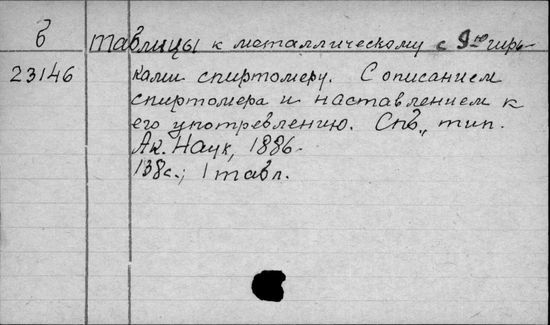 б
Таблицы к металлическому с 9-ю гирь-
23146
ками спиртомеру. С описанием
спиртомера и наставлением к
его употреблению. Спб., тип.
Ак. Наук, 1886.
138с.; 1 табл.